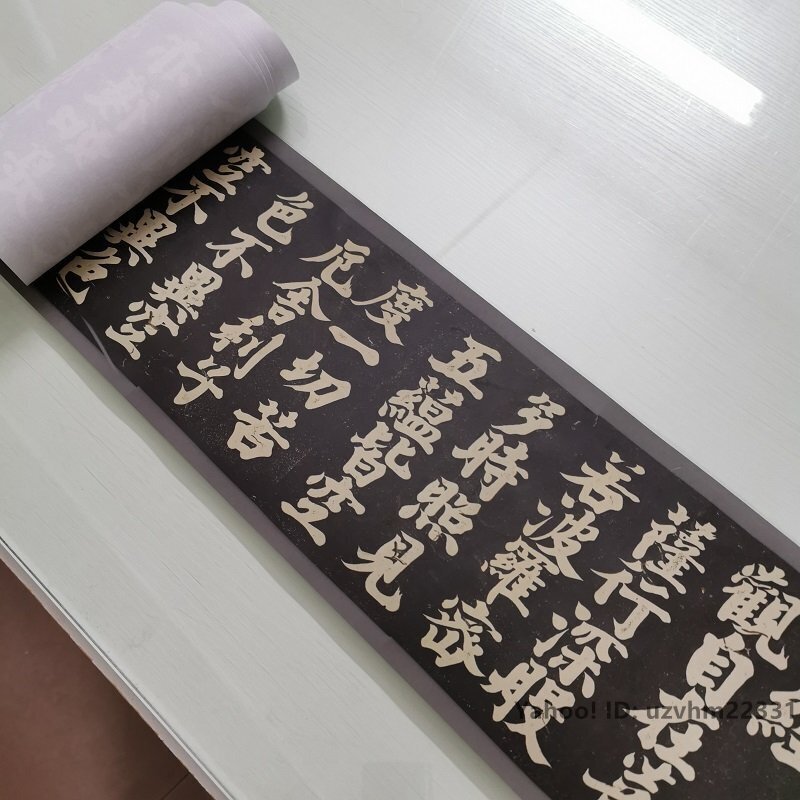 經
觀自在菩
薩行深般
若波羅密
多時照見
五蘊皆空
度一切苦
厄舍利子
色不異空
空不異色
Yahoo! ID: uzvhm22331